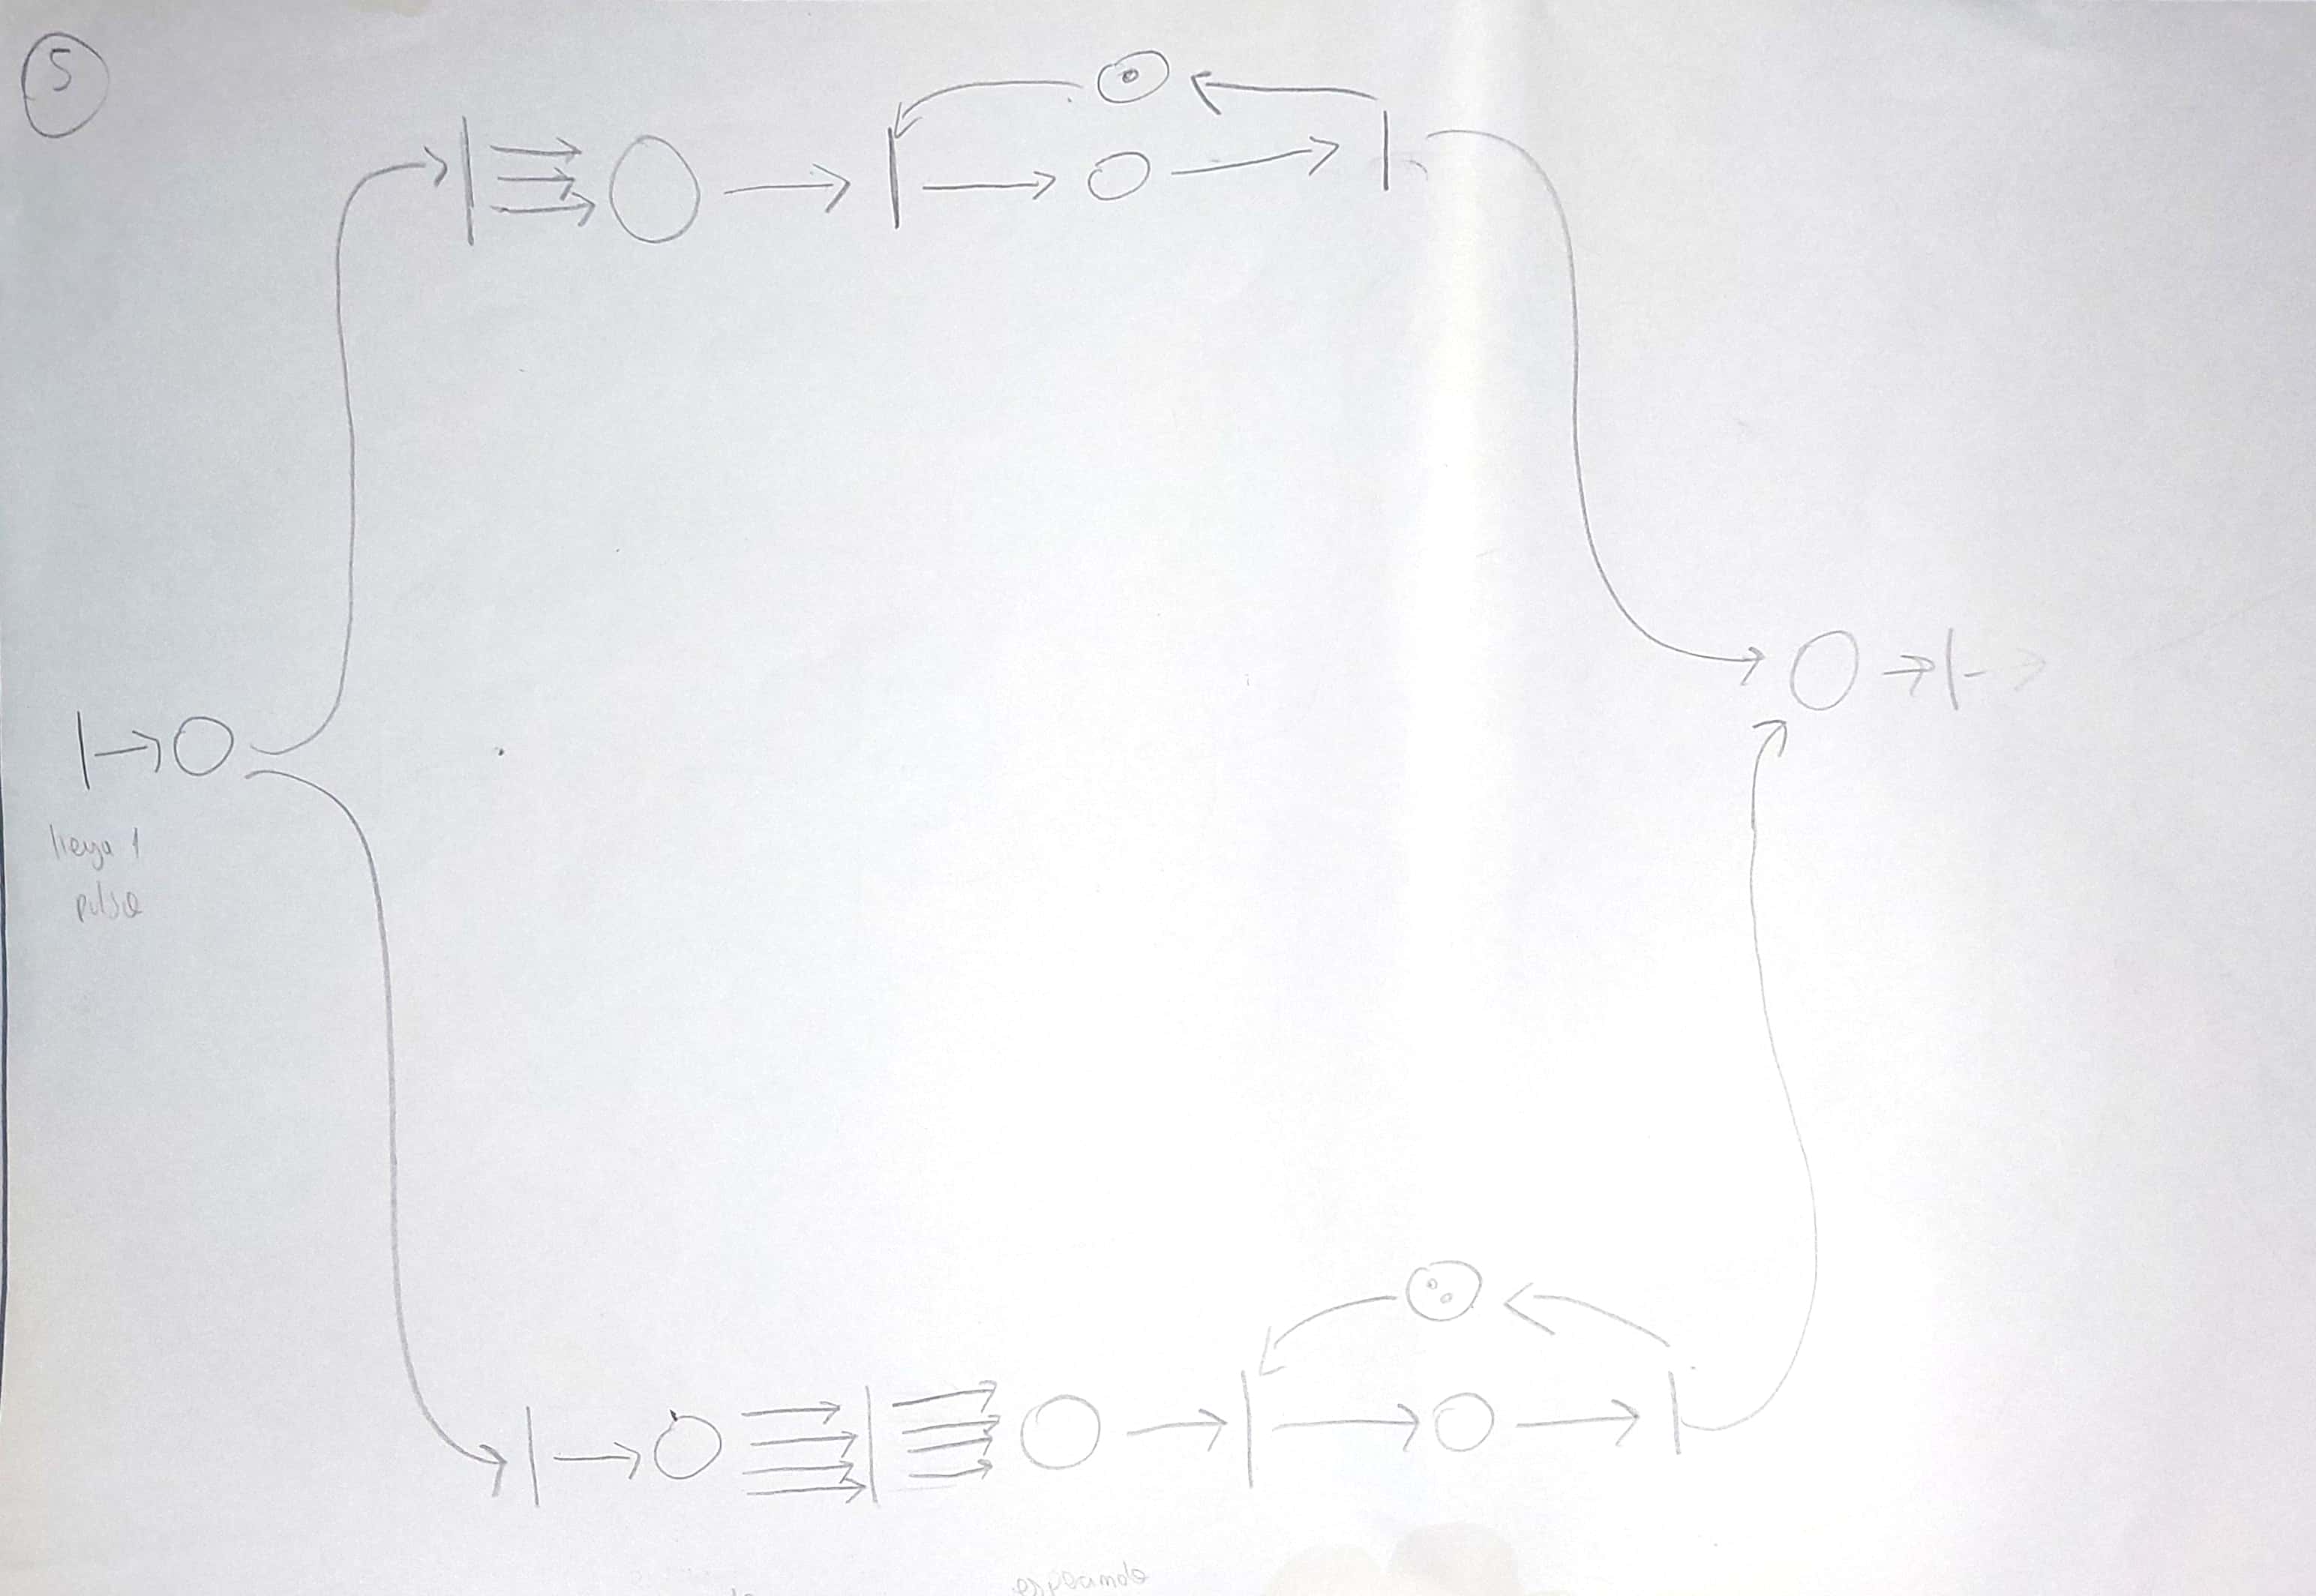 5
llega 1
pulso
esperando